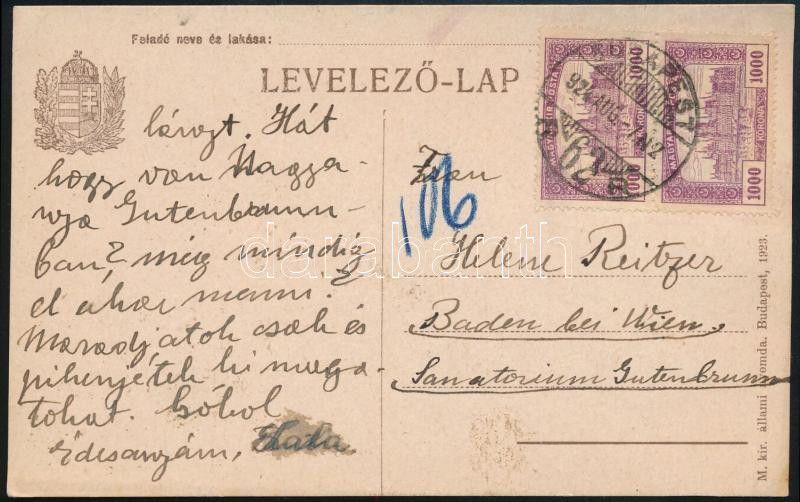 Feladó neve és lakása:
LEVELEZŐ-LAP
1000
1000
1000
1000
MAGYAR KIR. POSTA
KORONA
BUDAPEST
924 AUG.
Hát
hogy van Nagya-
nyja Gutenbrunn-
ban? még mindig
el akar menni?
Maradjatok csak és
pihenjétek ki maga-
tokat. Csókol
Édesanyám, Kata
106
Frau
Helene Reitzer
Baden bei Wien,
Sanatorium Gutenbrunn
darabanth
M. kir. állami nyomda. Budapest, 1923.